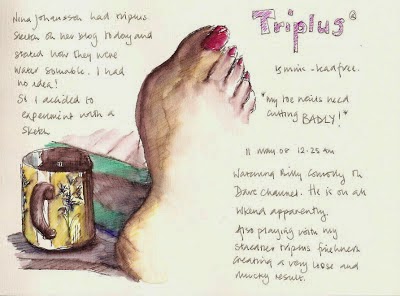 Nina Johansson had triplus
sketch on her blog today and
stated how they were
water soluable. I had
no idea!
So I decided to
experiment with a
sketch
Triplus
15 min - lead free.
"my toe nails need
cutting BADLY!"
11 May 08 12.25 am
Watching Billy Connolly on
Dave Channel. He is on all
Wkend apparently.
Also playing with my
Staedtler triplus fineliners
creating a very loose and
mucky result.